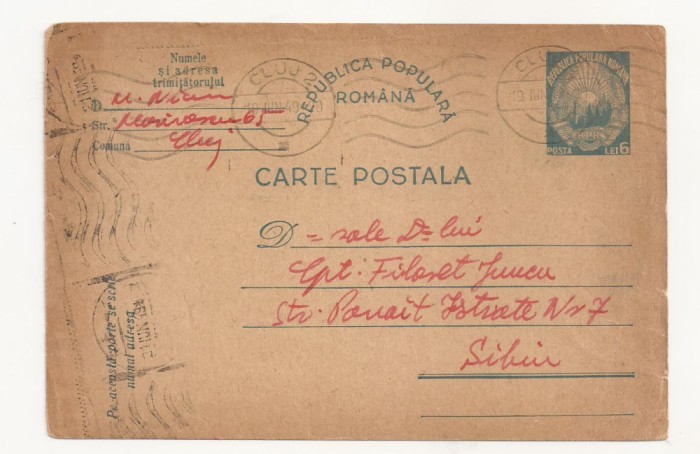 Numele
și adresa
trimițătorului
D
Str. 65
Comuna Cluj
CLUJ 2
19 IUN 49
REPUBLICA POPULARĂ
ROMÂNĂ
CLUJ
19 IUN
REPUBLICA POPULARA ROMANA
RPR
POSTA LEI 6
CARTE POSTALA
D-sale D-lui
Cpt. Filaret Juncu
Str. Panait Istrate Nr 7
Sibiu
Pe această parte se scrie
numai adresa
IUN